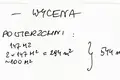 — WYCENA
POWIERZCHNI:
147 M²
2 × 147 M² = 294 M²
~100 M²
} 541 M²